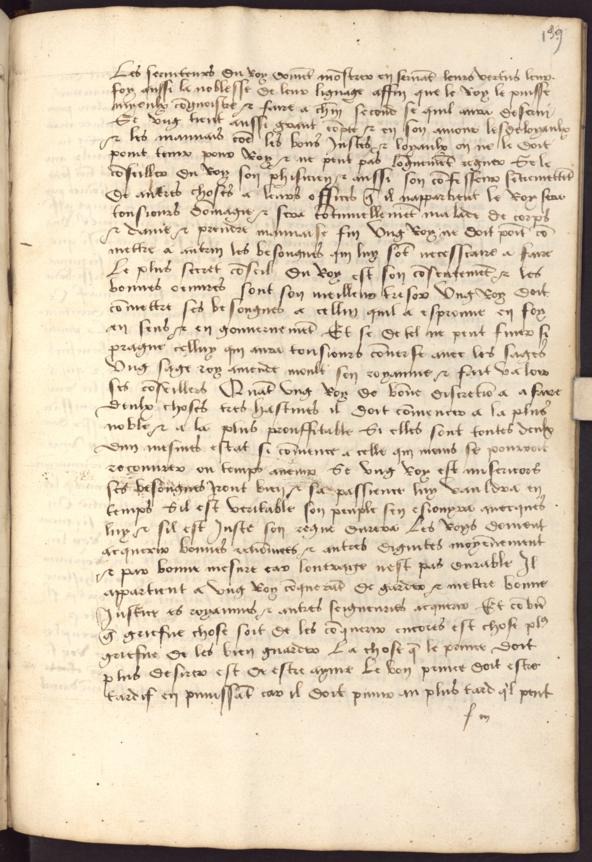 139
Les serviteurs du Roy doivēt mōstrer en servāt leurs vertus leur
foy aussi la noblesse de leur lignage affin que le Roy le puisse
mieulx cognoistre & faire a chūn secōd ce quil aura deservi
Se ung tient aussi grant cōpte & en son amour les desloyaulx
& les mauvais cōe les bons justes & loyaulx on ne le doit
point tenir pour Roy & ne peut pas longuemēt regner Se le
cōseillier du Roy son phisicien & aussi son cōfesseur sentremettēt
de autres choses a leurs offices q̄ il nappartient le Roy sera
tousiours domagie & sera cōtinuellemēt malade de corps
& dame & prendre mauvaise fin Ung Roy ne doit poīt cō
mettre a autrui les besongnes qui luy sōt necessaire a faire
Le plus secret cōseil du Roy est son cōscētemēt & les
bonnes oeuvres sont son meilleur tresor Ung Roy doit
cōmettre ses besongnes a celluy quil a esprouve en foy
en sens & en gouvernemēt Et se de tel ne peut finer si
pragne celluy qui aura tousiours cōverse avec les sages
Ung sage roy amende moult son royaume & fait valoir
ses cōseillers Quāt ung Roy de bōne discretiō a a faire
deulx choses tres hastives il doit cōmencer a la plus
noble & a la plus prouffitable Si elles sont toutes deulx
dun mesmes estat si cōmēce a celle qui moins se pourroit
recouvrer ou temps avenir Se ung Roy est misericors
ses besongnes iront bien & sa passience luy vauldra en
temps Sil est veritable son peuple sen esiouyra avecques
luy & sil est juste son regne durera Les Roys doivent
acquerir bonnes renōmees & autres dignites moyēnemēt
& par bonne mesure car loultraige nest pas durable Il
appartient a ung Roy cōquerāt de garder & mettre bonne
justice es royaumes & autres seigneuries acquerir Et cōbiē
q̄ griefve chose soit de les cōquerir encores est chose plus
griefve de les bien guarder La chose q̄ le prince doit
plus desirer est destre ayme Le bon prince doit estre
tardif en punissāt car il doit punir au plus tard q'l peut